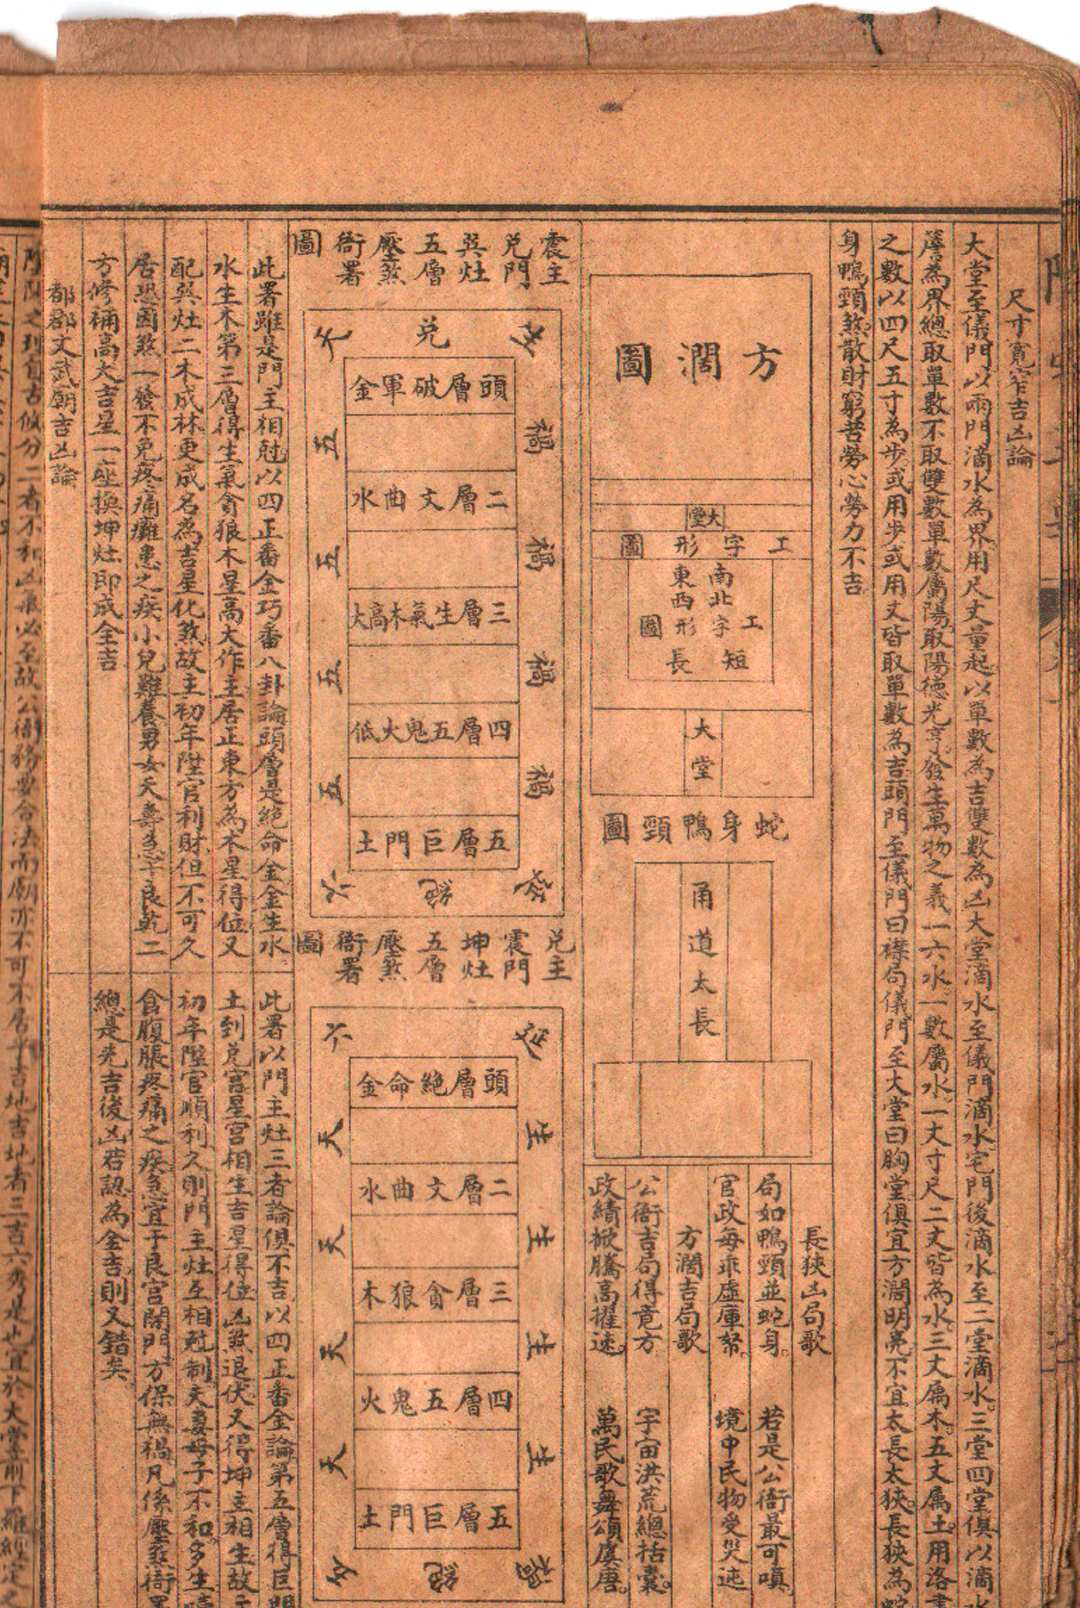 尺寸寬窄吉凶論
大堂至儀門以兩門滴水為界用尺丈量起以單數為吉雙數為凶大堂滴水至儀門滴水宅門後滴水至二堂滴水三堂四堂俱以滴水
簷為界總取單數不取雙數單數屬陽取陽德光亨發生萬物之義一六水一數屬水一丈寸尺二丈皆為水三丈屬木五丈屬土用洛書
之數以四尺五寸為步或用步或用丈皆取單數為吉頭門至儀門曰磔局儀門至大堂曰胸堂俱宜方濶明亮不宜太長太狹長狹為蛇
身鴨頸煞散財窮苦勞心勞力不吉
方濶圖
大堂
工字形圖
南北短
東西長
工字形圖
大堂
蛇身鴨頸圖
甬道太長
長狹凶局歌
局如鴨頸並蛇身 若是公衙最可嗔
官政每乖虛庫帑 境中民物受災迍
方濶吉局歌
公衙吉局得寬方 宇宙洪荒總括囊
政績掀騰高擢速 萬民歌舞頌虞唐
震主兌門巽灶五層壓煞衙署圖
兌
頭層破軍金
二層文曲水
三層生氣木高大
四層五鬼火低
五層巨門土
禍 禍 禍 禍
五 五 五 五
六 絕
兌主震門坤灶五層壓煞衙署圖
六 延
頭層絕命金
二層文曲水
三層貪狼木
四層五鬼火
五層巨門土
生 生 生 生
天 天 天 天
絕 禍
此署雖是門主相尅以四正番金巧番八卦論頭層是絕命金金生水
水生木第三層得生氣貪狼木星高大作主居正東方為木星得位又
配巽灶二木成林更成名為吉星化煞故主初年陞官利財但不可久
居恐囚煞一發不免疼痛癱患之疾小兒難養男女夭壽急于艮乾二
方修補高大吉星一座換坤灶即成全吉
都郡文武廟吉凶論
此署以門主灶三者論俱不吉以四正番金論第五層得巨門
土到兌宮星宮相生吉星得位凶煞退伏又得坤主相生故主
初年陞官順利久則門主灶互相尅制夫妻母子不和多生
食腹脹疼痛之疾急宜于艮宮開門方保無禍凡係壓煞衙署
總是先吉後凶若認為全吉則又錯矣